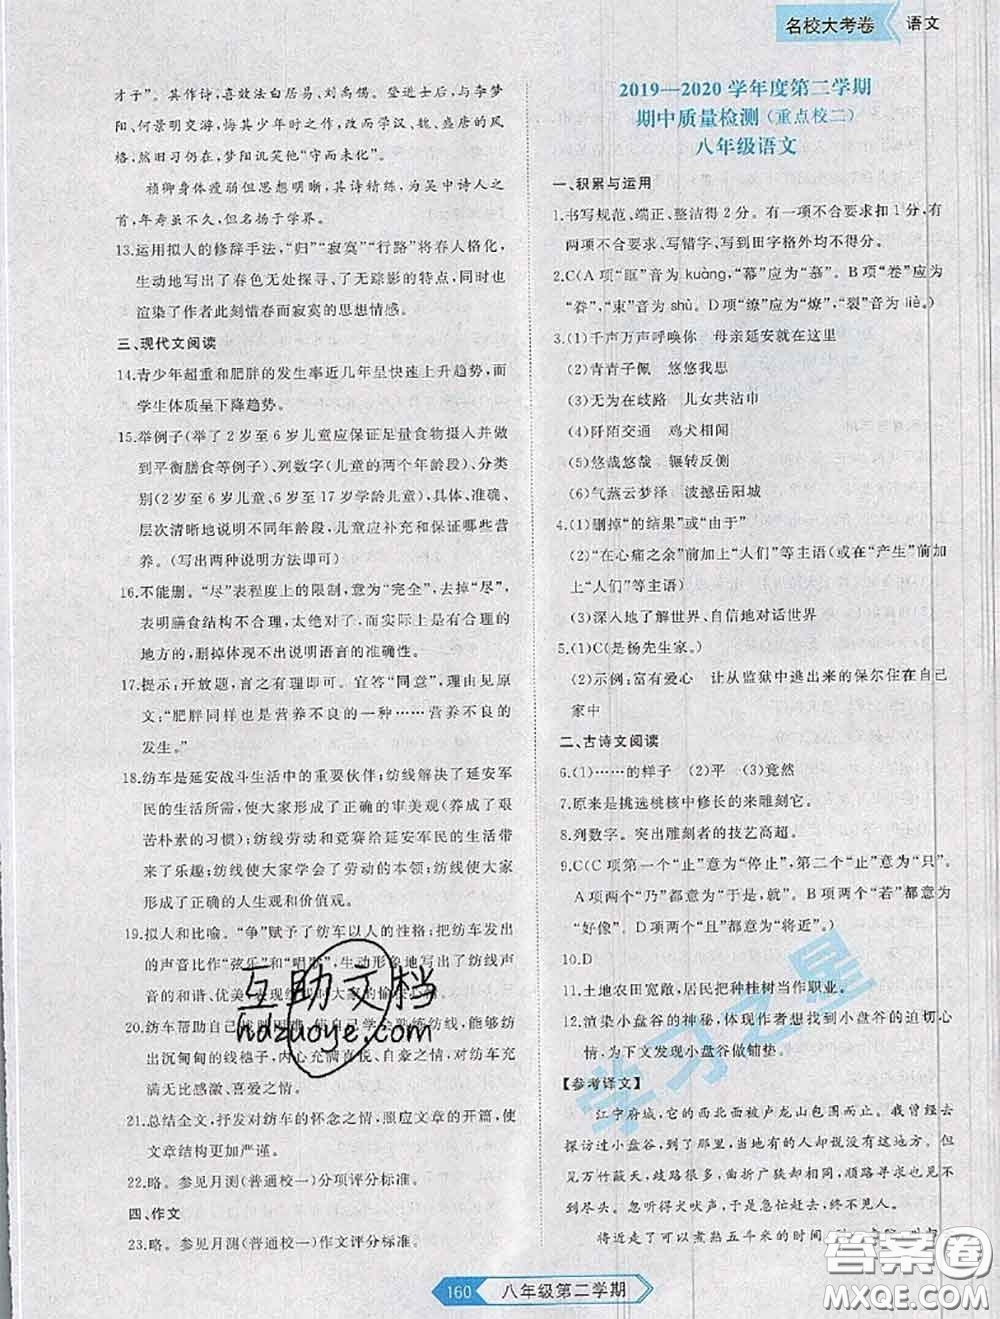 名校大考卷 语文
才子”。其作诗,喜效法白居易、刘禹锡。登进士后,与李梦
阳、何景明交游,悔其少时之作,改习汉、魏、盛唐的风
格,然旧习仍在,梦阳讥笑他“守而未化”。
祯卿身体瘦弱但思想明晰,其诗精练,为吴中诗人之
首,年寿虽不久,但名扬于学界。
13.运用拟人的修辞手法,“归”“寂寞”“行路”将春人格化,
生动地写出了春色无处探寻、了无踪影的特点,同时也
渲染了作者此刻惜春而寂寞的思想情感。
三、现代文阅读
14.青少年超重和肥胖的发生率近几年呈快速上升趋势,而
学生体质呈下降趋势。
15.举例子(举了 2 岁至 6 岁儿童应保证足量食物摄人并做
到平衡膳食等例子)、列数字(儿童的两个年龄段)、分类
别(2 岁至 6 岁儿童、6 岁至 17 岁学龄儿童),具体、准确、
层次清晰地说明不同年龄段,儿童应补充和保证哪些营
养。(写出两种说明方法即可)
16.不能删。“尽”表程度上的限制,意为“完全”,去掉“尽”,
表明膳食结构不合理,太绝对,而实际上是有合理的
地方的,删掉体现不出说明语言的准确性。
17.提示:开放题,言之有理即可。宜答“同意”,理由见原
文:“肥胖同样也是营养不良的一种……营养不良的
发生。”
18.纺车是延安战斗生活中的重要伙伴;纺线解决了延安军
民的生活所需,使大家形成了正确的审美观(养成了艰
苦朴素的习惯);纺线劳动和竞赛给延安军民的生活带
来了乐趣;纺线使大家学会了劳动的本领;纺线使大家
形成了正确的人生观和价值观。
19.拟人和比喻。“争”赋予了纺车以人的性格;把纺车发出
的声音比作“弦乐”和“唱歌”,生动形象地写出了纺线声
音的和谐、优美,表现纺线时的愉悦心情。
20.纺车帮助自己战胜困难,使自己学会了纺线,纺出
沉甸甸的线穗子,内心充满喜悦、自豪之情;对纺车
无比感激、喜爱之情。
21.总结全文,抒发对纺车的怀念之情,照应文章的开篇,使
文章结构更加严谨。
22.略。参见月测(普通校一)分项评分标准。
四、作文
23.略。参见月测(普通校一)作文评分标准。
2019—2020 学年度第二学期
期中质量检测(重点校二)
八年级语文
一、积累与运用
1.书写规范、端正、整洁得 2 分。有一项不合要求扣 1 分,有
两项不合要求、写错字、写到田字格外均不得分。
2.C(A 项“眶”音为 kuàng,“幕”应为“慕”。B 项“卷”应为
“眷”,“束”音为 shù。D 项“缭”应为“燎”,“裂”音为 liè。)
3.(1)千声万声呼唤你 母亲延安就在这里
(2)青青子佩 悠悠我思
(3)无为在歧路 儿女共沾巾
(4)阡陌交通 鸡犬相闻
(5)悠哉悠哉 辗转反侧
(6)气蒸云梦泽 波撼岳阳城
4.(1)删掉“的结果”或“由于”
(2)“在心痛之余”前加上“人们”等主语(或在“产生”前加
上“人们”等主语)
(3)深入地了解世界、自信地对话世界
5.(1)C(是杨先生家。)
(2)示例:富有爱心 让从监狱中逃出来的保尔住在自己
家中
二、古诗文阅读
6.(1)……的样子 (2)平 (3)竟然
7.原来是挑选桃核中修长的来雕刻它。
8.列数字。突出雕刻者的技艺高超。
9.C(C 项第一个“止”意为“停止”,第二个“止”意为“只”。
A 项两个“乃”都意为“于是,就”。B 项两个“若”都意为
“好像”。D 项两个“且”都意为“将近”。)
10.D
11.土地农田宽敞,居民把种桂树当作职业。
12.渲染小盘谷的神秘,体现作者想到小盘谷的急切心
情,为下文发现小盘谷做铺垫。
【参考译文】
江宁府城,它的西北面被卢龙山包围而止。我曾经去
探访过小盘谷,到了那里,当地的人却说没有这处地方。只看见
万竹蔽天,歧路很多,曲折广狭却连一样,顺着走却找不
到尽头。忽听得犬吠声,于是急忙赶去,终不见人。
将近走了可以煮熟五斗米的时间
160 八年级第二学期
互助文档
hdzuoye.com
学习之星
答案圈
MXQE.COM